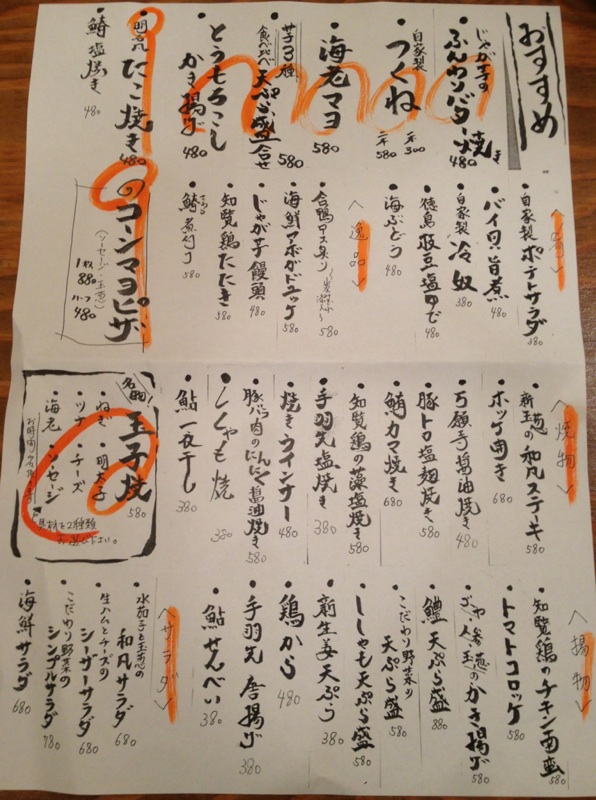 おすすめ
・じゃが芋の
ふんわりバター焼き
480
・自家製
つくね
一本300
二本580
・海老マヨ
580
・芋3種
食べ比べ天ぷら盛合せ
580
・とうもろこし
かき揚げ
480
・明太
たこ焼き
480
・鯖塩焼き
480
<肴>
・自家製ポテトサラダ
380
・バイ貝旨煮
480
・自家製冷奴
380
・徳島枝豆塩ゆで
480
・海ぶどう
480
<逸品>
・合鴨ロース炙り
580
・海鮮アボガドユッケ
580
・じゃが芋饅頭
480
・知覧鶏たたき
580
・鯖煮付け
580
コーンマヨピザ
(ソーセージ・玉葱)
1枚
880
ハーフ
480
<焼物>
・新玉葱の和風ステーキ
580
・ホッケ開き
680
・万願寺醤油焼き
480
・豚トロ塩麹焼き
580
・鰤カマ焼き
680
・知覧鶏の藻塩焼き
580
・手羽先塩焼き
380
・焼きウインナー
480
・豚バラ肉のにんにく醤油焼き
580
・ししゃも焼
380
・鮎一夜干し
380
名物
玉子焼
580
・ねぎ・明太子
・ツナ・チーズ
・海老・ソーセージ
具材を2種類
お選び下さい。
<揚物>
・知覧鶏のチキン南蛮
580
・トマトコロッケ
580
・ごぼう・人参・玉葱のかき揚げ
580
・鱧天ぷら盛
880
・こだわり野菜の
天ぷら盛
580
・ししゃも天ぷら盛
580
・新生姜天ぷら
380
・鶏から
480
・手羽先唐揚げ
380
・鮎せんべい
380
<サラダ>
・水茄子と玉葱の
和風サラダ
680
・生ハムとチーズの
シーザーサラダ
680
・こだわり野菜の
シンプルサラダ
780
・海鮮サラダ
680